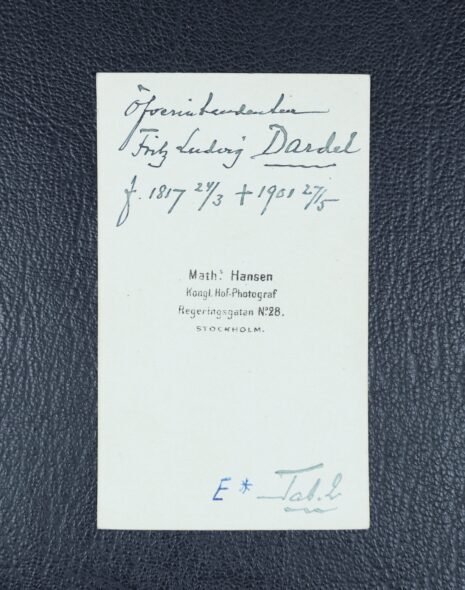 Öfverintendenten
Fritz Ludvig Dardel
f. 1817 24/3 + 1901 27/5
Math.s Hansen
Kongl. Hof-Photograf
Regeringsgatan No 28.
STOCKHOLM.
E * Tab. 2